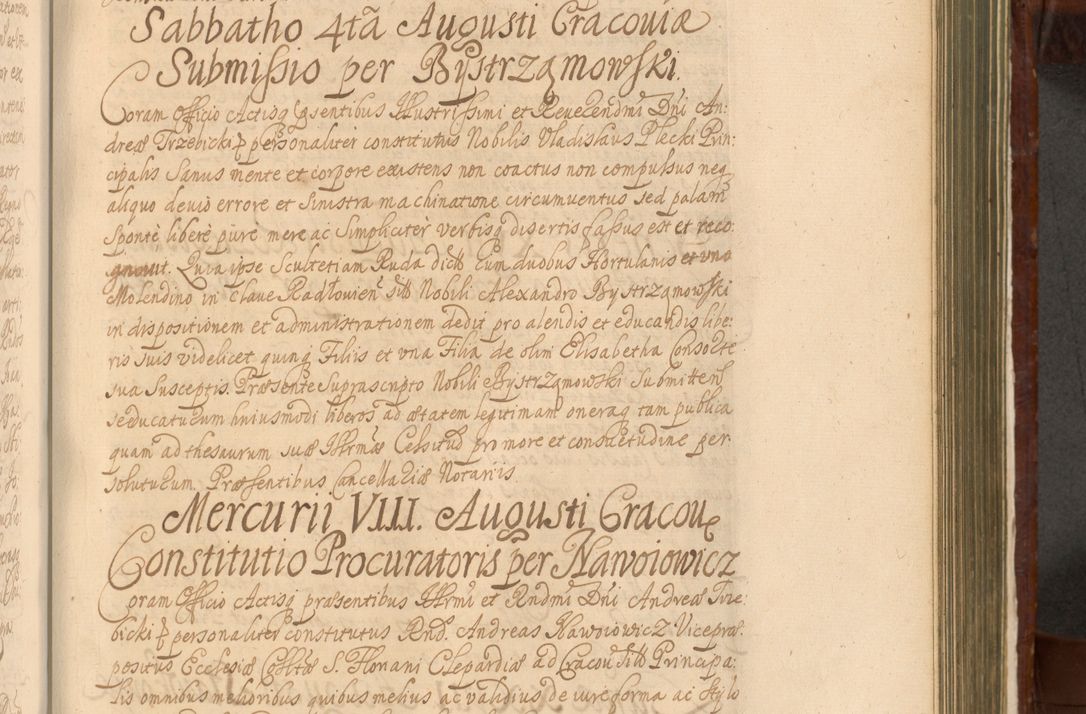 Sabbatho 4tã Augusti Cracoviæ
Submissio per Bystrząmowski.
Coram Officio Actisq pñsentibus Illustrissimi et Reverendmi Dñi An:
dreæ Trzebicki & personaliter constitutus Nobilis Vladislaus Plecki Prin:
cipalis Sanus mente et corpore existens non coactus non compulsus neq
aliquo devio errore et sinistra machinatione circumventus sed palam
sponte libere pure mere ac simpliciter verbisq disertis fassus est et reco:
gnovit. Quia ipse Scultetiam Ruda dictt cum duobus Hortulanis et uno
Molendino in Clave Radłovien sitt Nobili Alexandro Bystrząmowski
in dispositionem et administrationem dedit pro alendis et educandis libe:
ris suis videlicet quinq Filiis et una Filia de olim Elisabetha Consorte
sua Susceptis. Præsente Suprascripto Nobili Bystrząmowski submitten
se educaturum huiusmodi liberos ad ætatem legitimam oneraq tam publica
quam ad thesaurum suæ Illrmæ Celsitud pro more et consuetudine per
soluturum. Præsentibus Cancellariæ Notariis.
Mercurii VIII. Augusti Cracoviæ
Constitutio Procuratoris per Nawoiowicz
Coram Officio Actisq præsentibus Illrmi et Rndmi Dñi Andreæ Trze:
bicki & personaliter constitutus Rnd. Andreas Nawoiowicz Vicepræ:
positus Ecclesiæ Colltæ S. Floriani Clepardiæ ad Cracov sitt Principa:
lis omnibus melioribus quibus melius ac validius de iure forma ac stylo